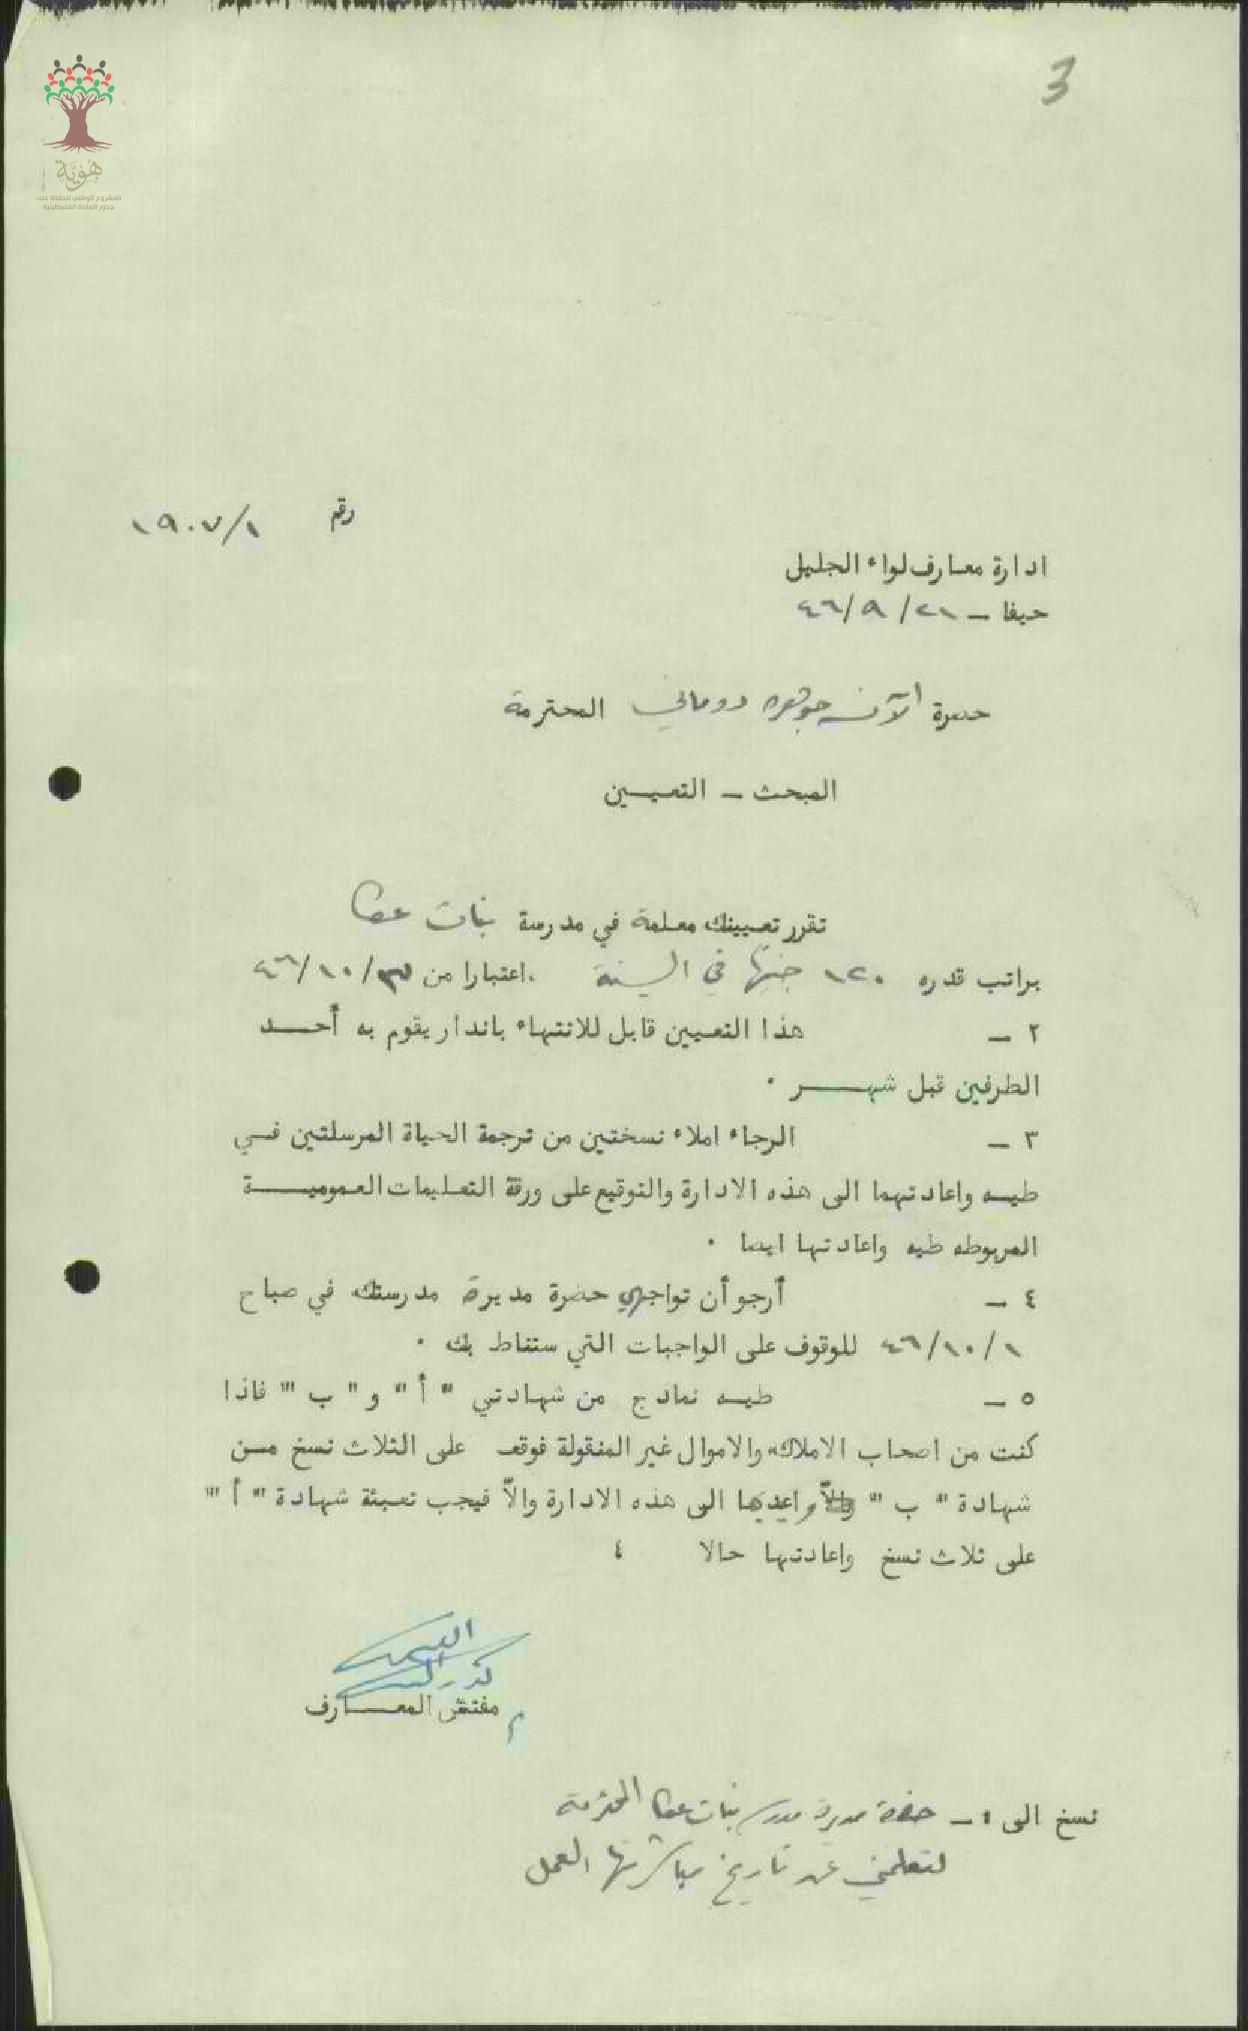 3
هُوِيَّة
المشروع الوطني للحفاظ على
جذور العائلة الفلسطينية
رقم ١٩٠٧/١
ادارة معارف لواء الجليل
حيفا – ٢١/ ٩/ ٤٦
حضرة الآنسه جوهره دوماني المحترمة
المبحث – التعيــين
تقرر تعيينك معلمة في مدرسة بنات عكا
براتب قدره ١٢٠ جنيهًا في السنة .اعتبارا من /١٠/ ٤٦
٢ – هذا التعيين قابل للانتهاء باندار يقوم به أحــد
الطرفين قبل شهــر .
٣ – الرجاء املاء نسختين من ترجمة الحياة المرسلتين فــي
طيــه واعادتهما الى هذه الادارة والتوقيع على ورقة التعليمات العموميــة
المربوطه طيه واعادتها ايضا .
٤ – أرجو أن تواجهي حضرة مديرة مدرستك في صباح
١ /١٠/ ٤٦ للوقوف على الواجبات التي ستناط بك .
٥ – طيــه نماذج من شهادتي " أ " و " ب " فاذا
كنت من اصحاب الاملاك والاموال غير المنقولة فوقعـ على الثلاث نسخ مــن
شهادة " ب " واعيديها الى هذه الادارة والاّ فيجب تعبئة شهادة " أ "
على ثلاث نسخ واعادتها حالا ٤
مفتش المعــارف
نسخ الى :– حضرة مديرة مدرسة بنات عكا المحترمة
لتعلمني عن تاريخ مباشرتها العمل